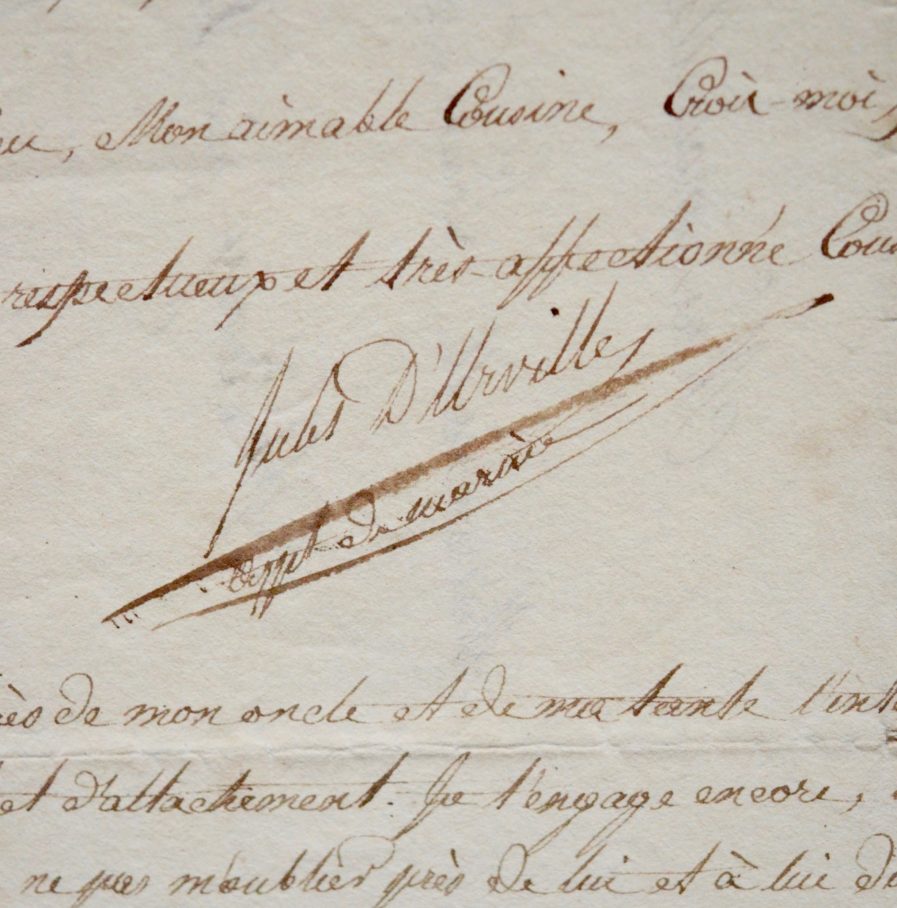 Mon aimable Cousine, Crois-moi,
respectueux et très-affectionné
Jules D'Urville
de marine
de mon oncle et de ma tante
et d'attachement. Je t'engage encore,
ne pas m'oublier près de lui et à lui